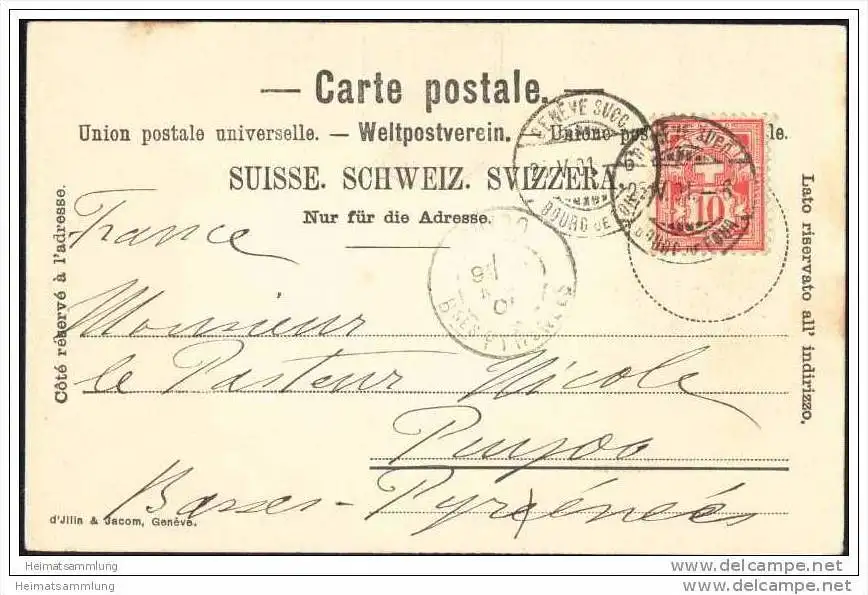 — Carte postale. —
Union postale universelle. — Weltpostverein. — Unione postale
SUISSE. SCHWEIZ. SVIZZERA.
Nur für die Adresse.
Côté réservé à l'adresse.
Lato riservato all' indirizzo.
GENÈVE SUCC.
BOURG DE FOUR
10
France
Monsieur
le Pasteur Nicole
Puyoo
Basses-Pyrénées
d'Jllin & Jacom, Genève.
Heimatsammlung
Heimatsammlung
www.delcampe.net